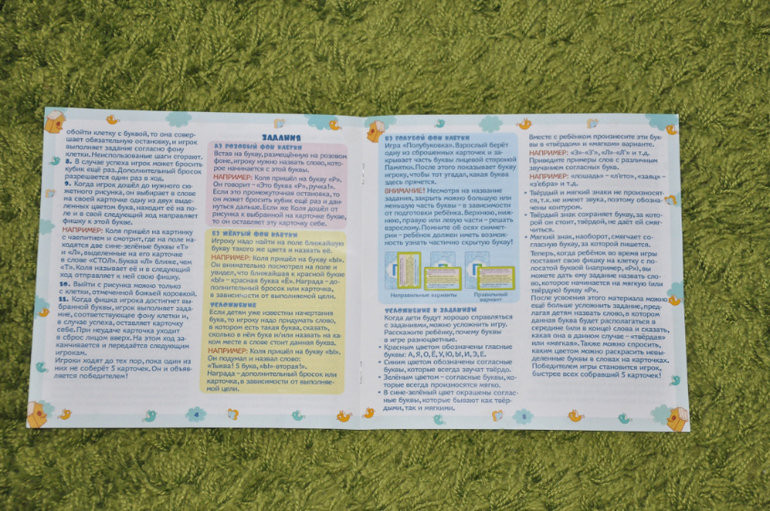 обойти клетку с буквой, то она совер-
шает обязательную остановку, и игрок
выполняет задание согласно фону
клетки. Неиспользованные шаги сгорают.
8. В случае успеха игрок может бросить
кубик ещё раз. Дополнительный бросок
разрешается один раз в ход.
9. Когда игрок дошёл до нужного сю-
жетного рисунка, он выбирает в слове
на своей карточке одну из двух выде-
ленных цветом букв, находит её на по-
ле и в свой следующий ход направляет
фишку к этой букве.
НАПРИМЕР: Коля пришёл на картинку
с чаепитием и смотрит, где на поле на-
ходятся две сине-зелёные буквы «Т»
и «Л», выделенные на его карточке
в слове «СТОЛ». Буква «Л» ближе, чем
«Т». Коля называет её и в следующий
ход отправляет к ней свою фишку.
10. Выйти с рисунка можно только
с клетки, отмеченной божьей коровкой.
11. Когда фишка игрока достигнет вы-
бранной буквы, игрок выполняет зада-
ние, соответствующее фону клетки и,
в случае успеха, оставляет карточку
себе. При неудаче карточка уходит
в сброс лицом вверх. На этом ход за-
канчивается и передаётся следующим
игрокам.
Игроки ходят до тех пор, пока один из
них не соберёт 5 карточек. Он и объяв-
ляется победителем!
ЗАДАНИЯ
А) РОЗОВЫЙ ФОН КЛЕТКИ
Встав на букву, размещённую на розовом
фоне, игроку нужно назвать слово, кото-
рое начинается с этой буквы.
НАПРИМЕР: Коля пришёл на букву «Р».
Он говорит – «Это буква «Р», ручка!».
Если это промежуточная остановка, то
он может бросить кубик ещё раз и дви-
нуться дальше. Если же Коля дошёл от
рисунка к выбранной на карточке букве,
то он оставляет эту карточку себе.
Б) ЖЁЛТЫЙ ФОН КЛЕТКИ
Игроку надо найти на поле ближайшую
букву такого же цвета и назвать её.
НАПРИМЕР: Коля пришёл на букву «Ы».
Он внимательно посмотрел на поле и
увидел, что ближайшая к красной букве
«Ы» – красная буква «Е». Награда – до-
полнительный бросок или карточка,
в зависимости от выполняемой цели.
УСЛОЖНЕНИЕ
Если детям уже известны начертания
букв, то игроку надо придумать слово,
в котором есть такая буква, сказать,
сколько в нём букв и/или назвать на ка-
ком месте в слове стоит данная буква.
НАПРИМЕР: Коля пришёл на букву «Ы».
Он подумал и назвал слово:
«Тыква! 5 букв, «Ы»-вторая!».
Награда – дополнительный бросок или
карточка, в зависимости от выполняе-
мой цели.
4
В) ГОЛУБОЙ ФОН КЛЕТКИ
Игра «Полубуковка». Взрослый берёт
одну из сброшенных карточек и за-
крывает часть буквы лицевой стороной
Памятки. После этого показывает букву
игроку, чтобы тот угадал, какая буква
здесь прячется.
ВНИМАНИЕ! Несмотря на название
задания, закрыть можно большую или
меньшую часть буквы – в зависимости
от подготовки ребёнка. Верхнюю, ниж-
нюю, правую или левую части – решать
взрослому. Помните об осях симмет-
рии – ребёнок должен иметь возмож-
ность узнать частично скрытую букву!
Неправильные варианты
Правильный
вариант
УСЛОЖНЕНИЕ К ЗАДАНИЯМ
Когда дети будут хорошо справляться
с заданиями, можно усложнить игру.
Расскажите ребёнку, почему буквы
в игре разноцветные.
• Красным цветом обозначены глас­ные
буквы: А, Я, О, Ё, У, Ю, Ы, И, Э, Е.
• Синим цветом обозначены согласные
буквы, которые всегда звучат твёрдо.
• Зелёным цветом – согласные буквы, ко-
торые всегда произносятся мягко.
• В сине-зелёный цвет окрашены соглас-
ные буквы, которые бывают как твёр-
дыми, так и мягкими.
5
Вместе с ребёнком произнесите эти бук-
вы в «твёрдом» и «мягком» варианте.
НАПРИМЕР: «З»–«З'», «Л»–«Л'» и т.д.
Приведите примеры слов с различным
звучанием согласных букв.
НАПРИМЕР: «лошадка» – «л'ето», «заяц» –
«з'ебра» и т.д.
• Твёрдый и мягкий знаки не произносят-
ся, т.к. не имеют звука, поэтому обозна-
чены контуром.
• Твёрдый знак сохраняет букву, за кото-
рой он стоит, твёрдой, не даёт ей смяг-
читься.
• Мягкий знак, наоборот, смягчает со-
гласную букву, за которой пишется.
Теперь, когда ребёнок во время игры
поставит свою фишку на клетку с по-
лосатой буквой (например, «Р»), вы
можете дать ему задание назвать сло-
во, которое начинается на мягкую (или
твёрдую) букву «Р».
После усвоения этого материала можно
ещё больше усложнить задание, пред-
лагая детям назвать слово, в котором
данная буква будет располагаться в
середине (или в конце) слова и сказать,
какая она в данном случае – «твёрдая»
или «мягкая». Также можно спросить,
каким цветом можно раскрасить невы-
деленные буквы в словах на карточках.
Победителем игры становится игрок,
быстрее всех собравший 5 карточек!